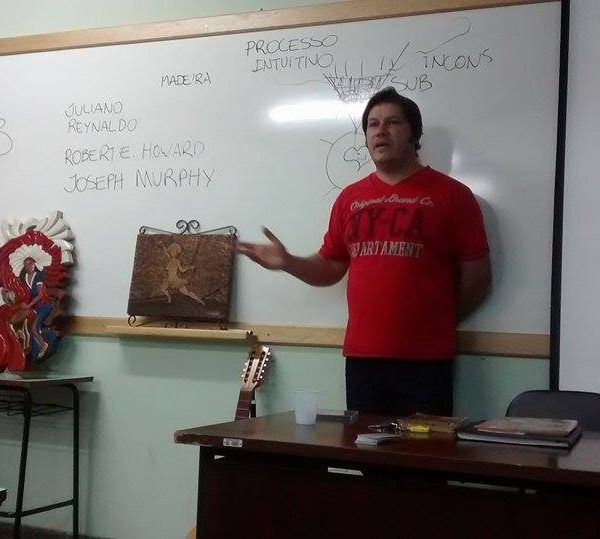 PROCESSO
INTUITINO
INCONS
SUB
MADEIRA
JULIANO
REYNALDO
ROBERT E. HOWARD
JOSEPH MURPHY
Original Brand Co.
TY-CA
DEPARTAMENT